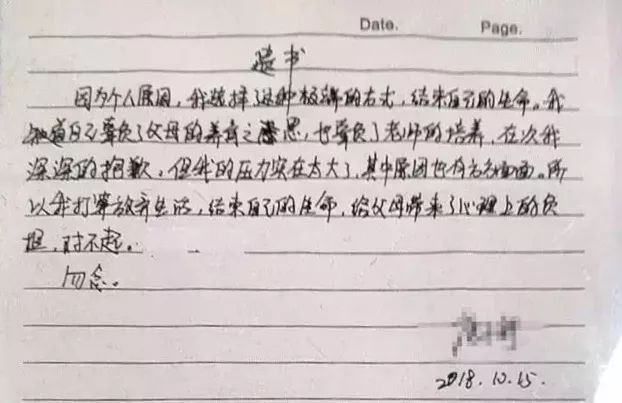 Date.
Page.
遗书
因为个人原因,我选择了这种极端的方式,结束自己的生命。我
知道自己辜负了父母的养育之恩,也辜负了老师的培养,在次我
深深的抱歉。但我的压力实在太大了,其中原因也有方方面面。所
以我打算放弃生活,结束自己的生命,给父母带来了心理上的负
担,对不起。
勿念。
2018.10.15.